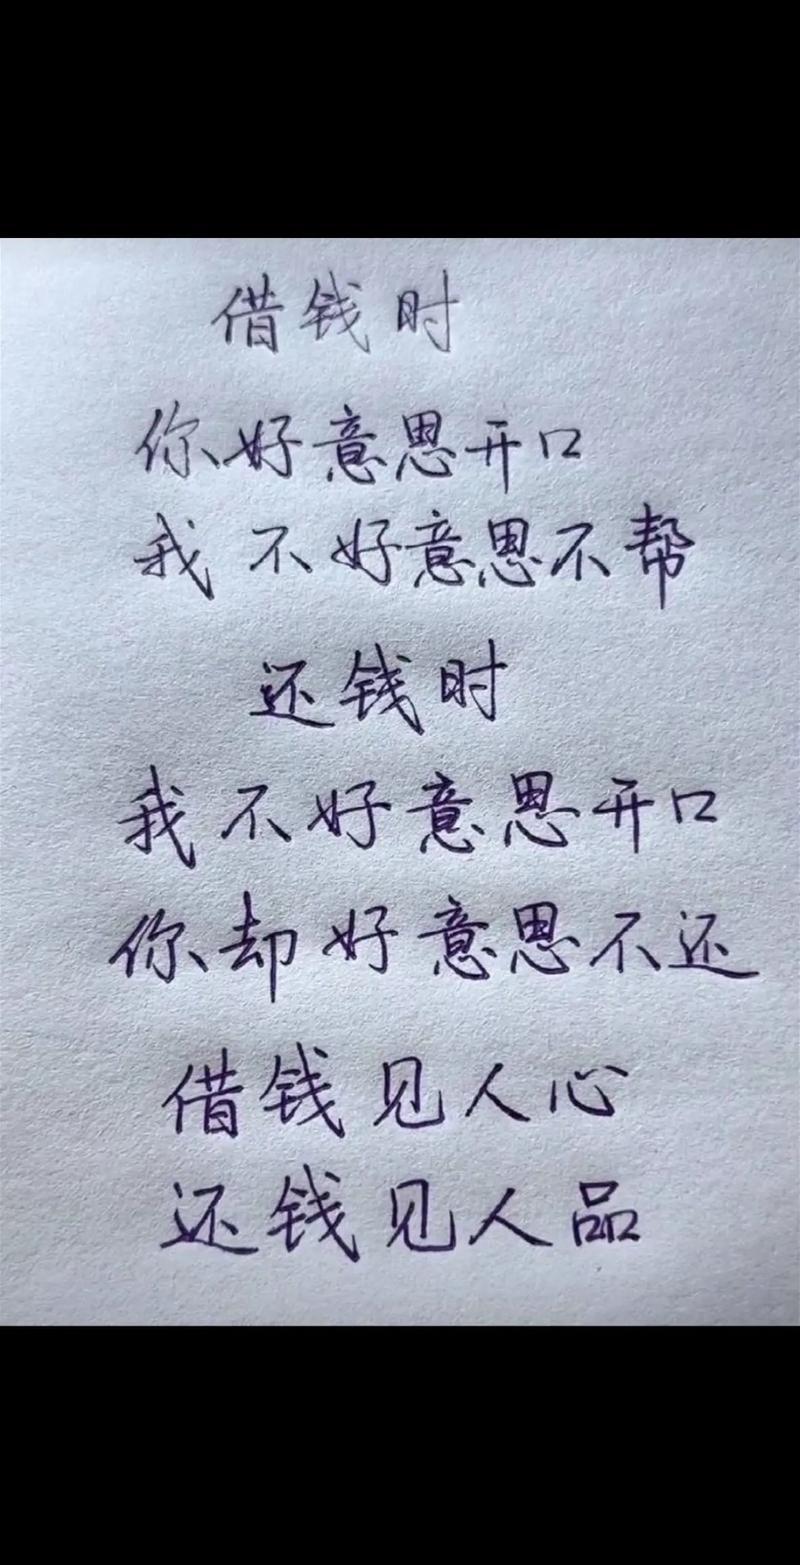 借钱时
你好意思开口
我不好意思不帮
还钱时
我不好意思开口
你却好意思不还
借钱见人心
还钱见人品